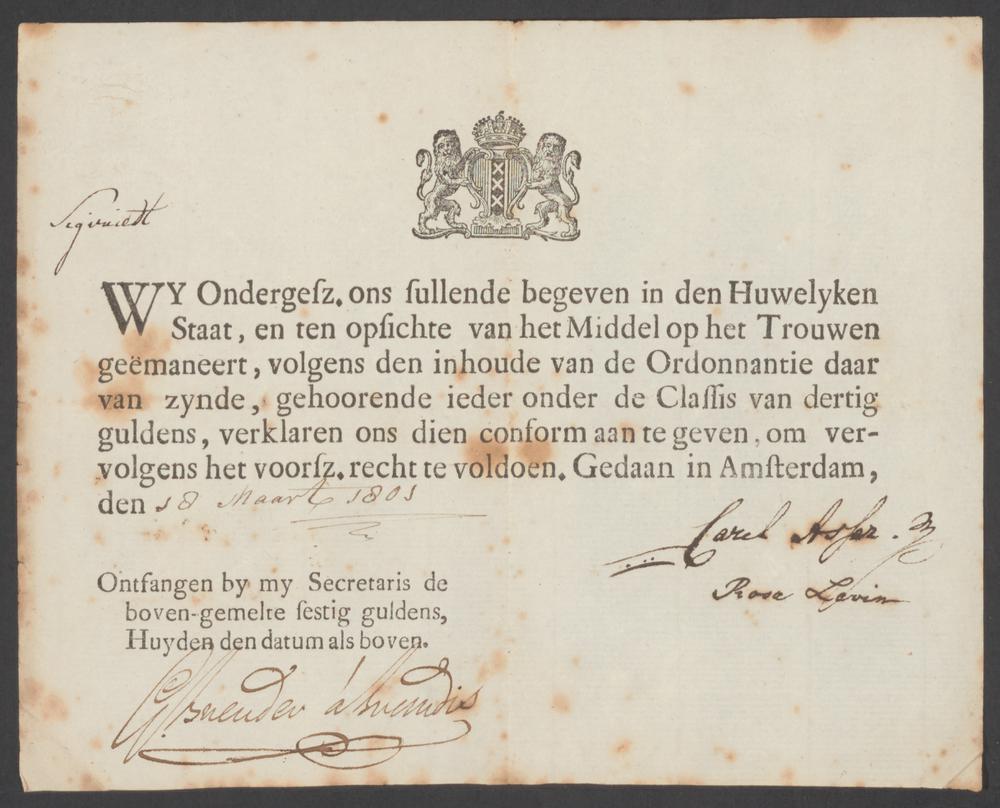 WY Ondergeſz. ons ſullende begeven in den Huwelyken
Staat, en ten opſichte van het Middel op het Trouwen
geëmaneert, volgens den inhoude van de Ordonnantie daar
van zynde, gehoorende ieder onder de Claſſis van dertig
guldens, verklaren ons dien conform aan te geven, om ver-
volgens het voorſz. recht te voldoen. Gedaan in Amſterdam,
den 18 Maart 1801
Carel Asser
Rosa Levin
Ontfangen by my Secretaris de
boven-gemelte ſestig guldens,
Huyden den datum als boven.